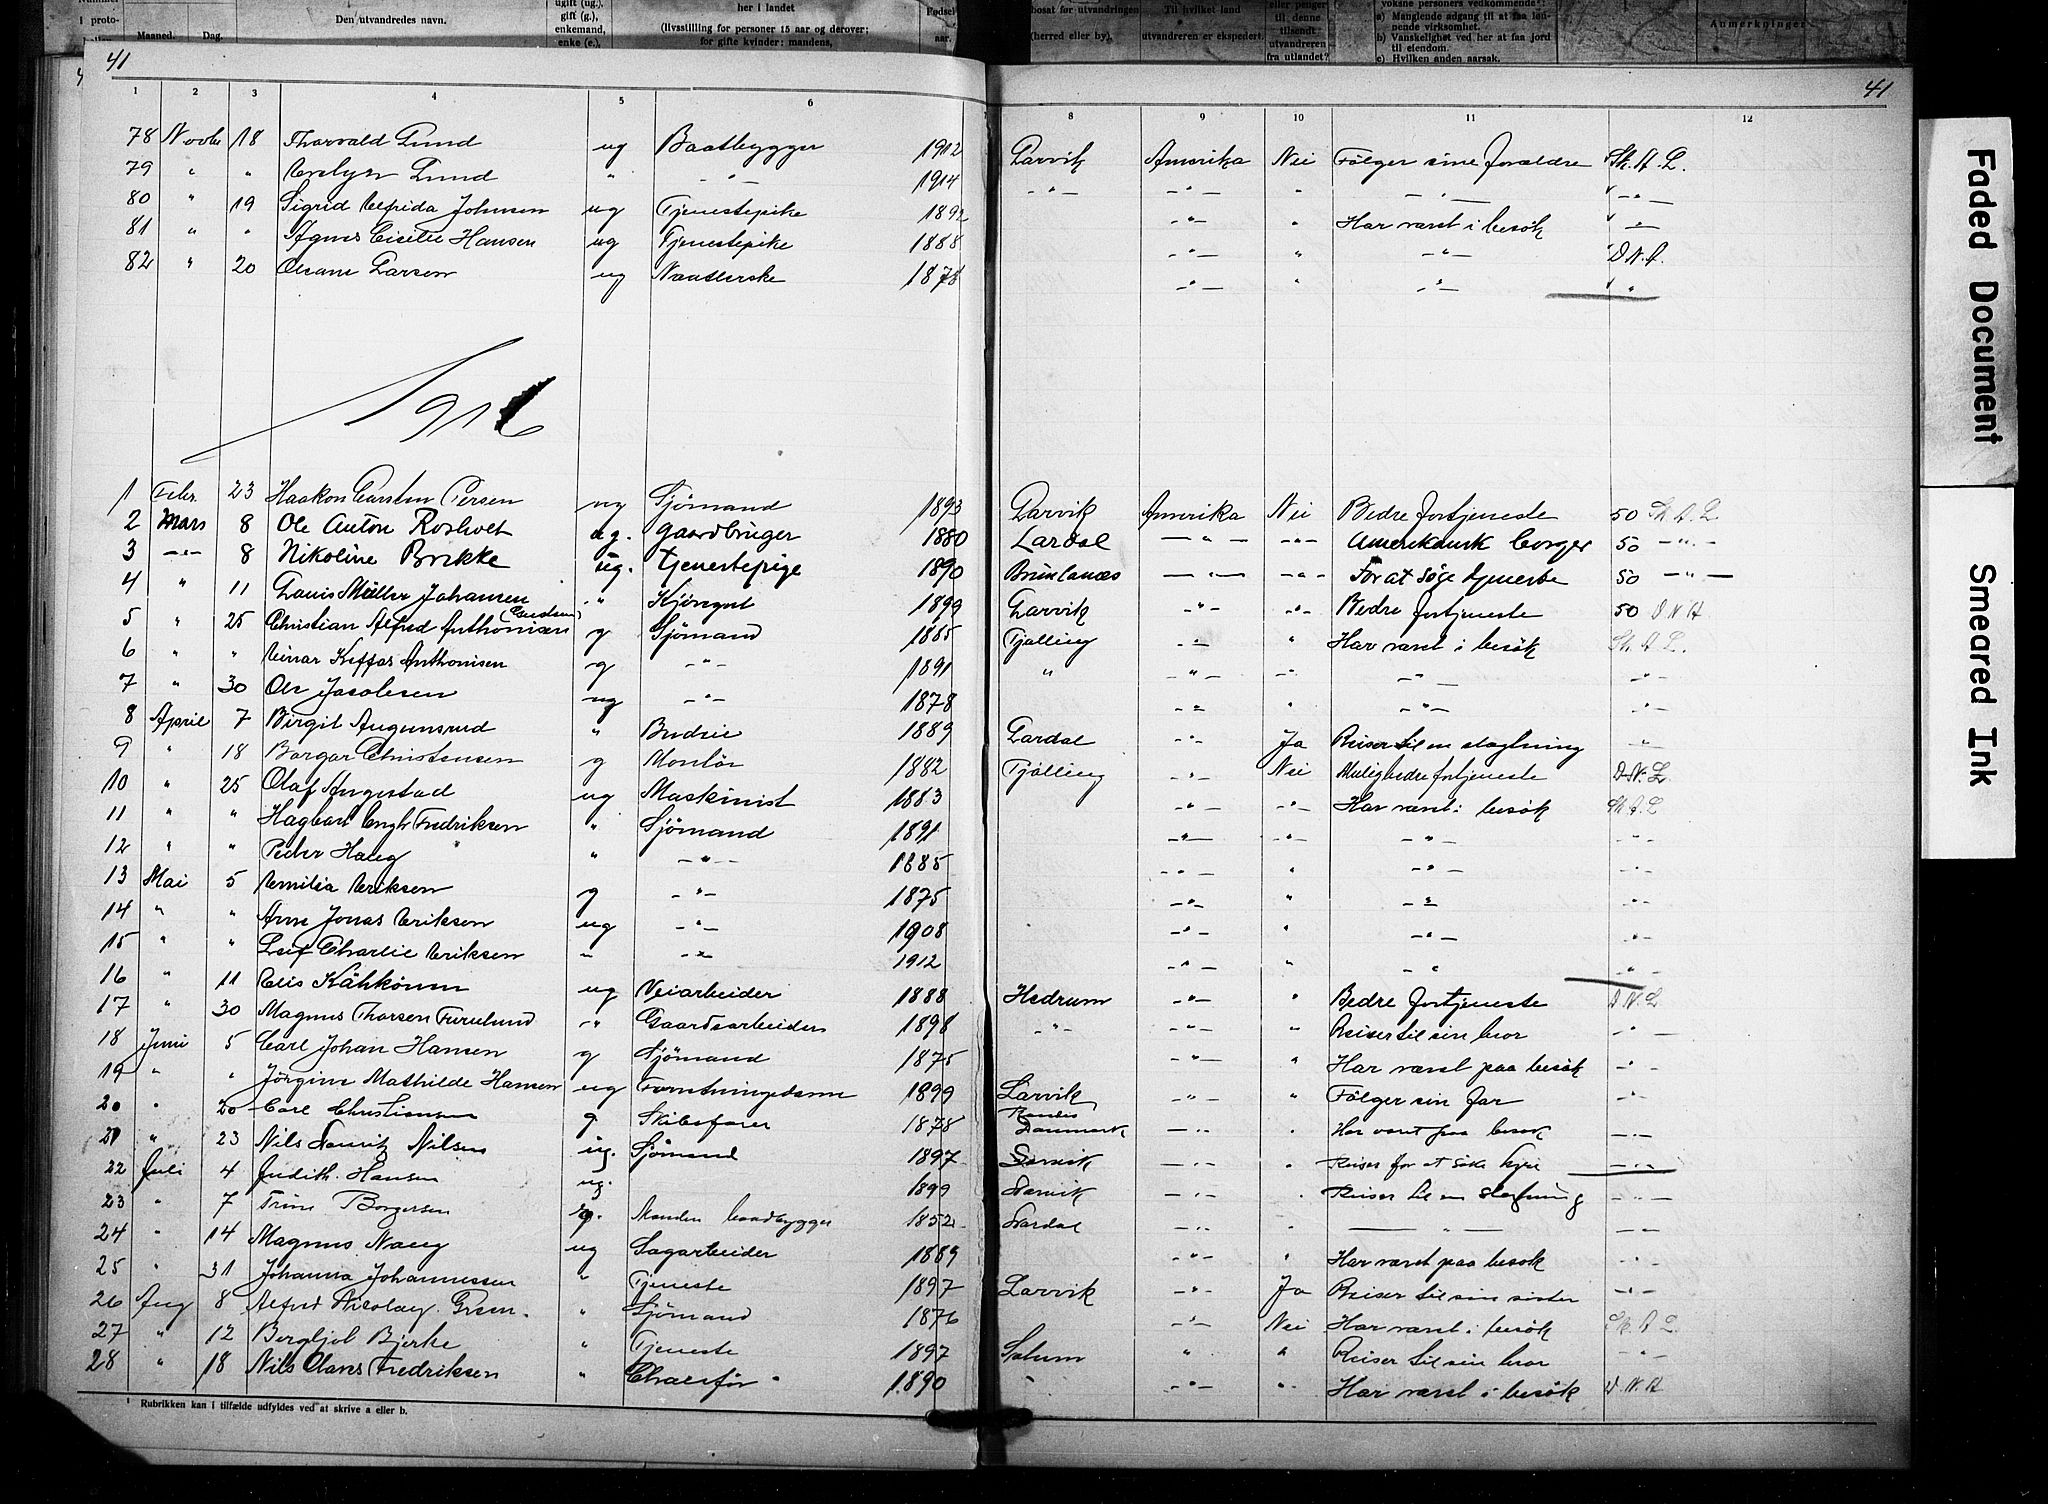 i proto-
Maaned. Dag.
Den utvandredes navn.
ugift (ug.),
gift (g.),
enkemand,
enke (e.),
her i landet
(livsstilling for personer 15 aar og derover;
for gifte kvinder: mandens,
Fødsels
aar.
bosat før utvandringen
(herred eller by).
Til hvilket land
utvandreren er ekspedert.
eller penger
til denne
tilsendt
utvandreren
fra utlandet?
voksne personers vedkommende:
a) Manglende adgang til at faa løn-
nende virksomhet.
b) Vanskelighet ved her at faa jord
til eiendom.
c) Hvilken anden aarsak.
Anmerkninger
41 41
1 2 3 4 5 6 8 9 10 11 12
78 Novbr 18 Thorvald Lund ug Baatbygger 1912 Larvik Amerika Nei Følger sine forældre Sk. A. L.
79 " " Evelyn Lund " -"- 1914 -"- -"- " -"- -"-
80 " 19 Sigrid Elfrida Johnsen ug Tjenestepike 1892 -"- " Har været i besök -"-
81 " " Agnes Cicilie Hansen ug Tjenestepike 1888 -"- " -"- D. N. A.
82 " 20 Larsen ug 1878 -"- " -"- "
1916
1 Febr. 23 Haakon Carsten Persen ug Sjömand 1893 Larvik Amerika Nei Bedre fortjeneste 50 Sk. A. L.
2 Mars 8 Ole Anton Rosholt ug. Gaardbruger 1880 Lardal -"- -"- Amerikansk borger 50 -"-
3 -"- 8 Nikoline Brekke ug. tjenestepige 1890 Brunlanæs -"- -"- For at söge tjeneste 50 -"-
4 " 11 Louis Müller Johansen " 1899 Larvik -"- -"- Bedre fortjeneste 50 D N A
5 " 25 Christian Alfred Anthonisen g Sjömand 1885 Tjölling -"- " Har været i besök Sk. A L.
6 " " Einar Keffas Anthonisen g -"- 1891 " -"- -"- -"- -"-
7 " 30 Ole Jacobsen ug -"- 1878 -"- " -"- -"-
8 April 7 Birgit Augunsrud " Budeie 1889 Lardal -"- Ja Reiser til en slægtning -"-
9 " 18 Borgar Christensen g Montör 1882 Tjölling -"- Nei Mulig bedre fortjeneste D. N. L.
10 " 25 Olaf Angestad ug Maskinist 1883 -"- -"- Har været i besök Sk A L
11 " " Hagbart Engh Fredriksen " Sjömand 1891 -"- -"- -"- -"-
12 " " Peder Haug " -"- 1885 -"- " -"- -"-
13 Mai 5 Emilia Eriksen g -"- 1875 -"- " -"- -"-
14 " " Arne Jonas Eriksen ug -"- 1908 -"- " -"- -"-
15 " " Leif Charlie Eriksen " -"- 1912 -"- " -"- -"-
16 " 11 Elis Kähkönen ug Veiarbeider 1888 Hedrum -"- " Bedre fortjeneste D. N. L
17 " 30 Magnus Thorsen Furulund -"- Gaardsarbeider 1898 -"- -"- " Reiser til sin bror -"-
18 Juni 5 Carl Johan Hansen g Sjömand 1875 -"- " Har været paa besök -"-
19 " " Jörgine Mathilde Hansen ug Forretningsdame 1899 Larvik -"- " Følger sin far -"-
20 " 20 Carl Christiansen g Skibsfører 1878 Randes Danmark -"- " Har været paa besøk -"-
21 " 23 Nils Lauritz Nilsen ug. Sjömand 1897 Larvik -"- " Reiser for at söke hyre -"-
22 Juli 4 Judith Hansen ug. 1899 Larvik -"- " Reiser til en slegtning -"-
23 " 7 Trine Borgersen g. Manden baadbygger 1852 Lardal -"- " -"- -"-
24 " 14 Magnus Haug ug Sagarbeider 1889 -"- " Har været paa besøk -"-
25 " 31 Johanna Johannessen " Tjeneste 1897 Larvik -"- Ja Reiser til sin sister -"-
26 Aug 8 Alfred Nicolay " Sjömand 1876 -"- Nei Har været i besök Sk. A L.
27 " 12 Bergljot Bjerke " Tjeneste 1897 Solum " " Reiser til sin bror -"-
28 " 18 Nils Olaves Fredriksen " Chaufför 1890 " -"- " Har været i besök D. N. A
¹ Rubrikken kan i tilfælde udfyldes ved at skrive a eller b.
Faded Document
Smeared Ink